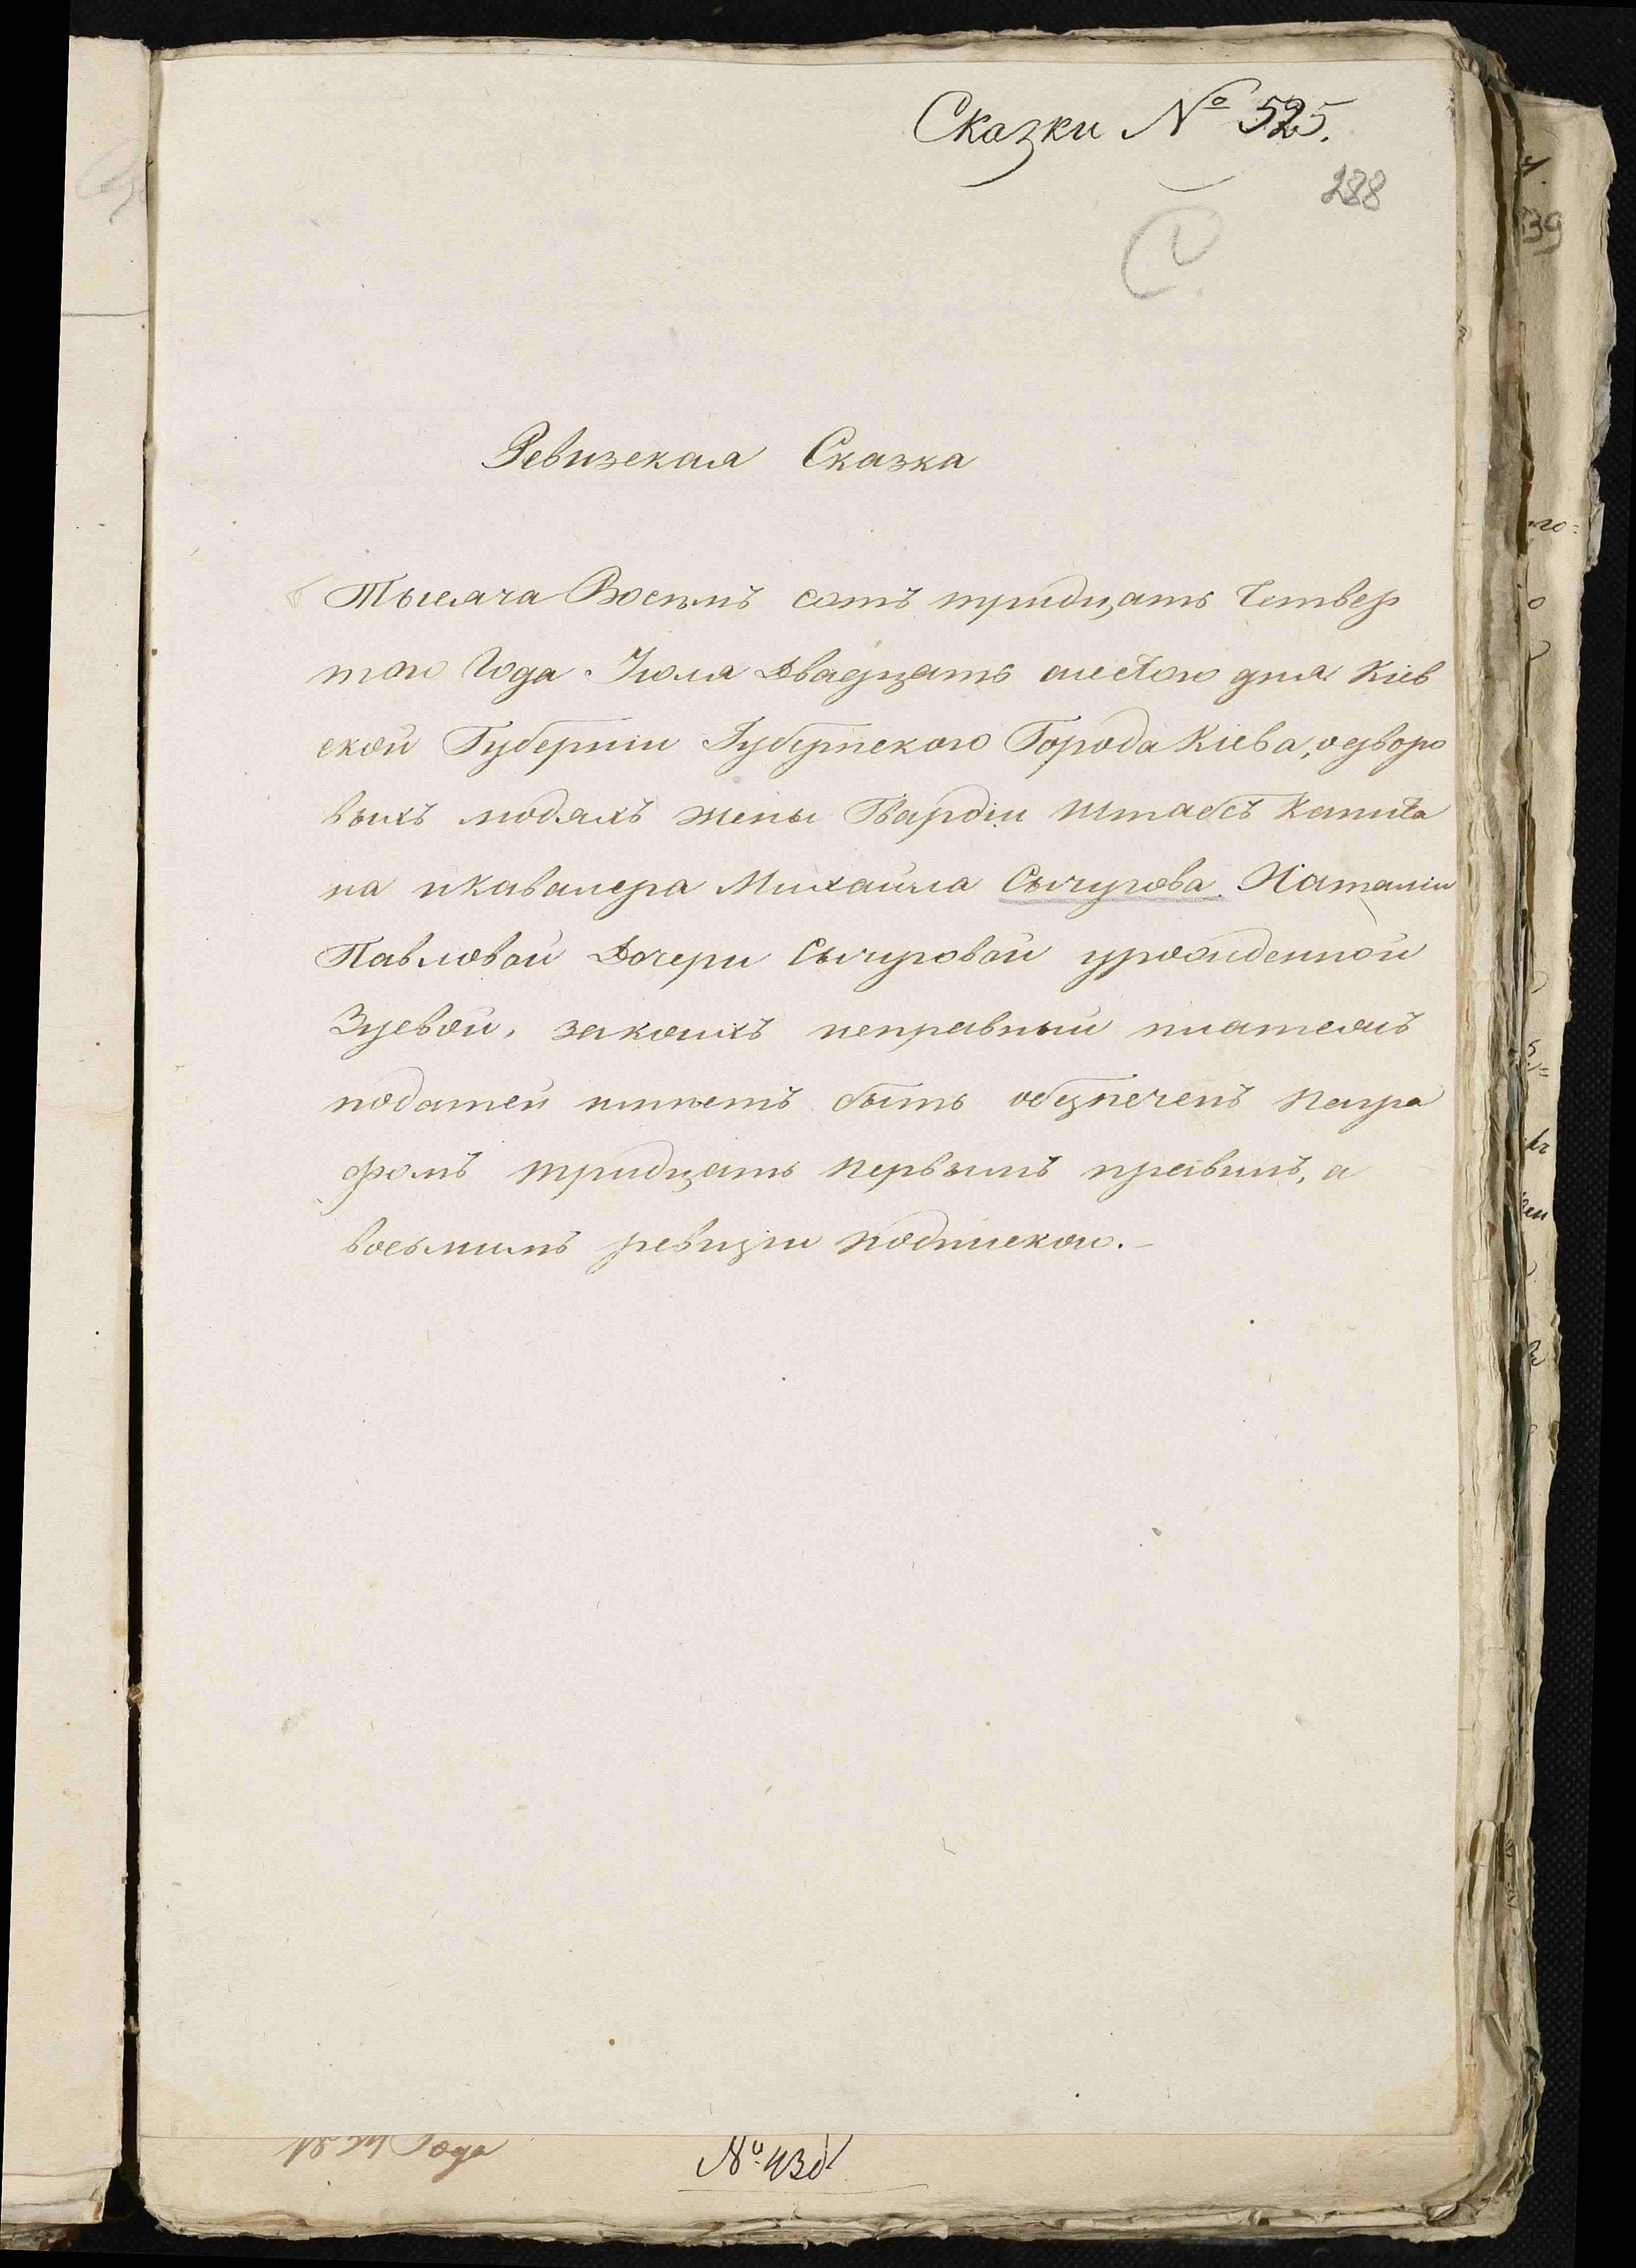 Сказки № 525.
288
Ревизская Сказка
Тысяча Восемъ сотъ тридцать Четвер
таго Года Іюля Двадцать шестаго дня Кіев
ской Губерніи Губернскаго Города Кіева, о дворо
выхъ людяхъ жены Гвардіи Штабсъ Капита
на и Кавалера Михайла Сычугова Наталіи
Павловой Дочери Сычуговой урожденной
Зуевой, за коихъ неправный платежъ
податей имѣетъ быть обезпеченъ Парагра
фомъ тридцать первымъ правилъ, а
восьмимъ ревизіи подпискою.
1834 Года